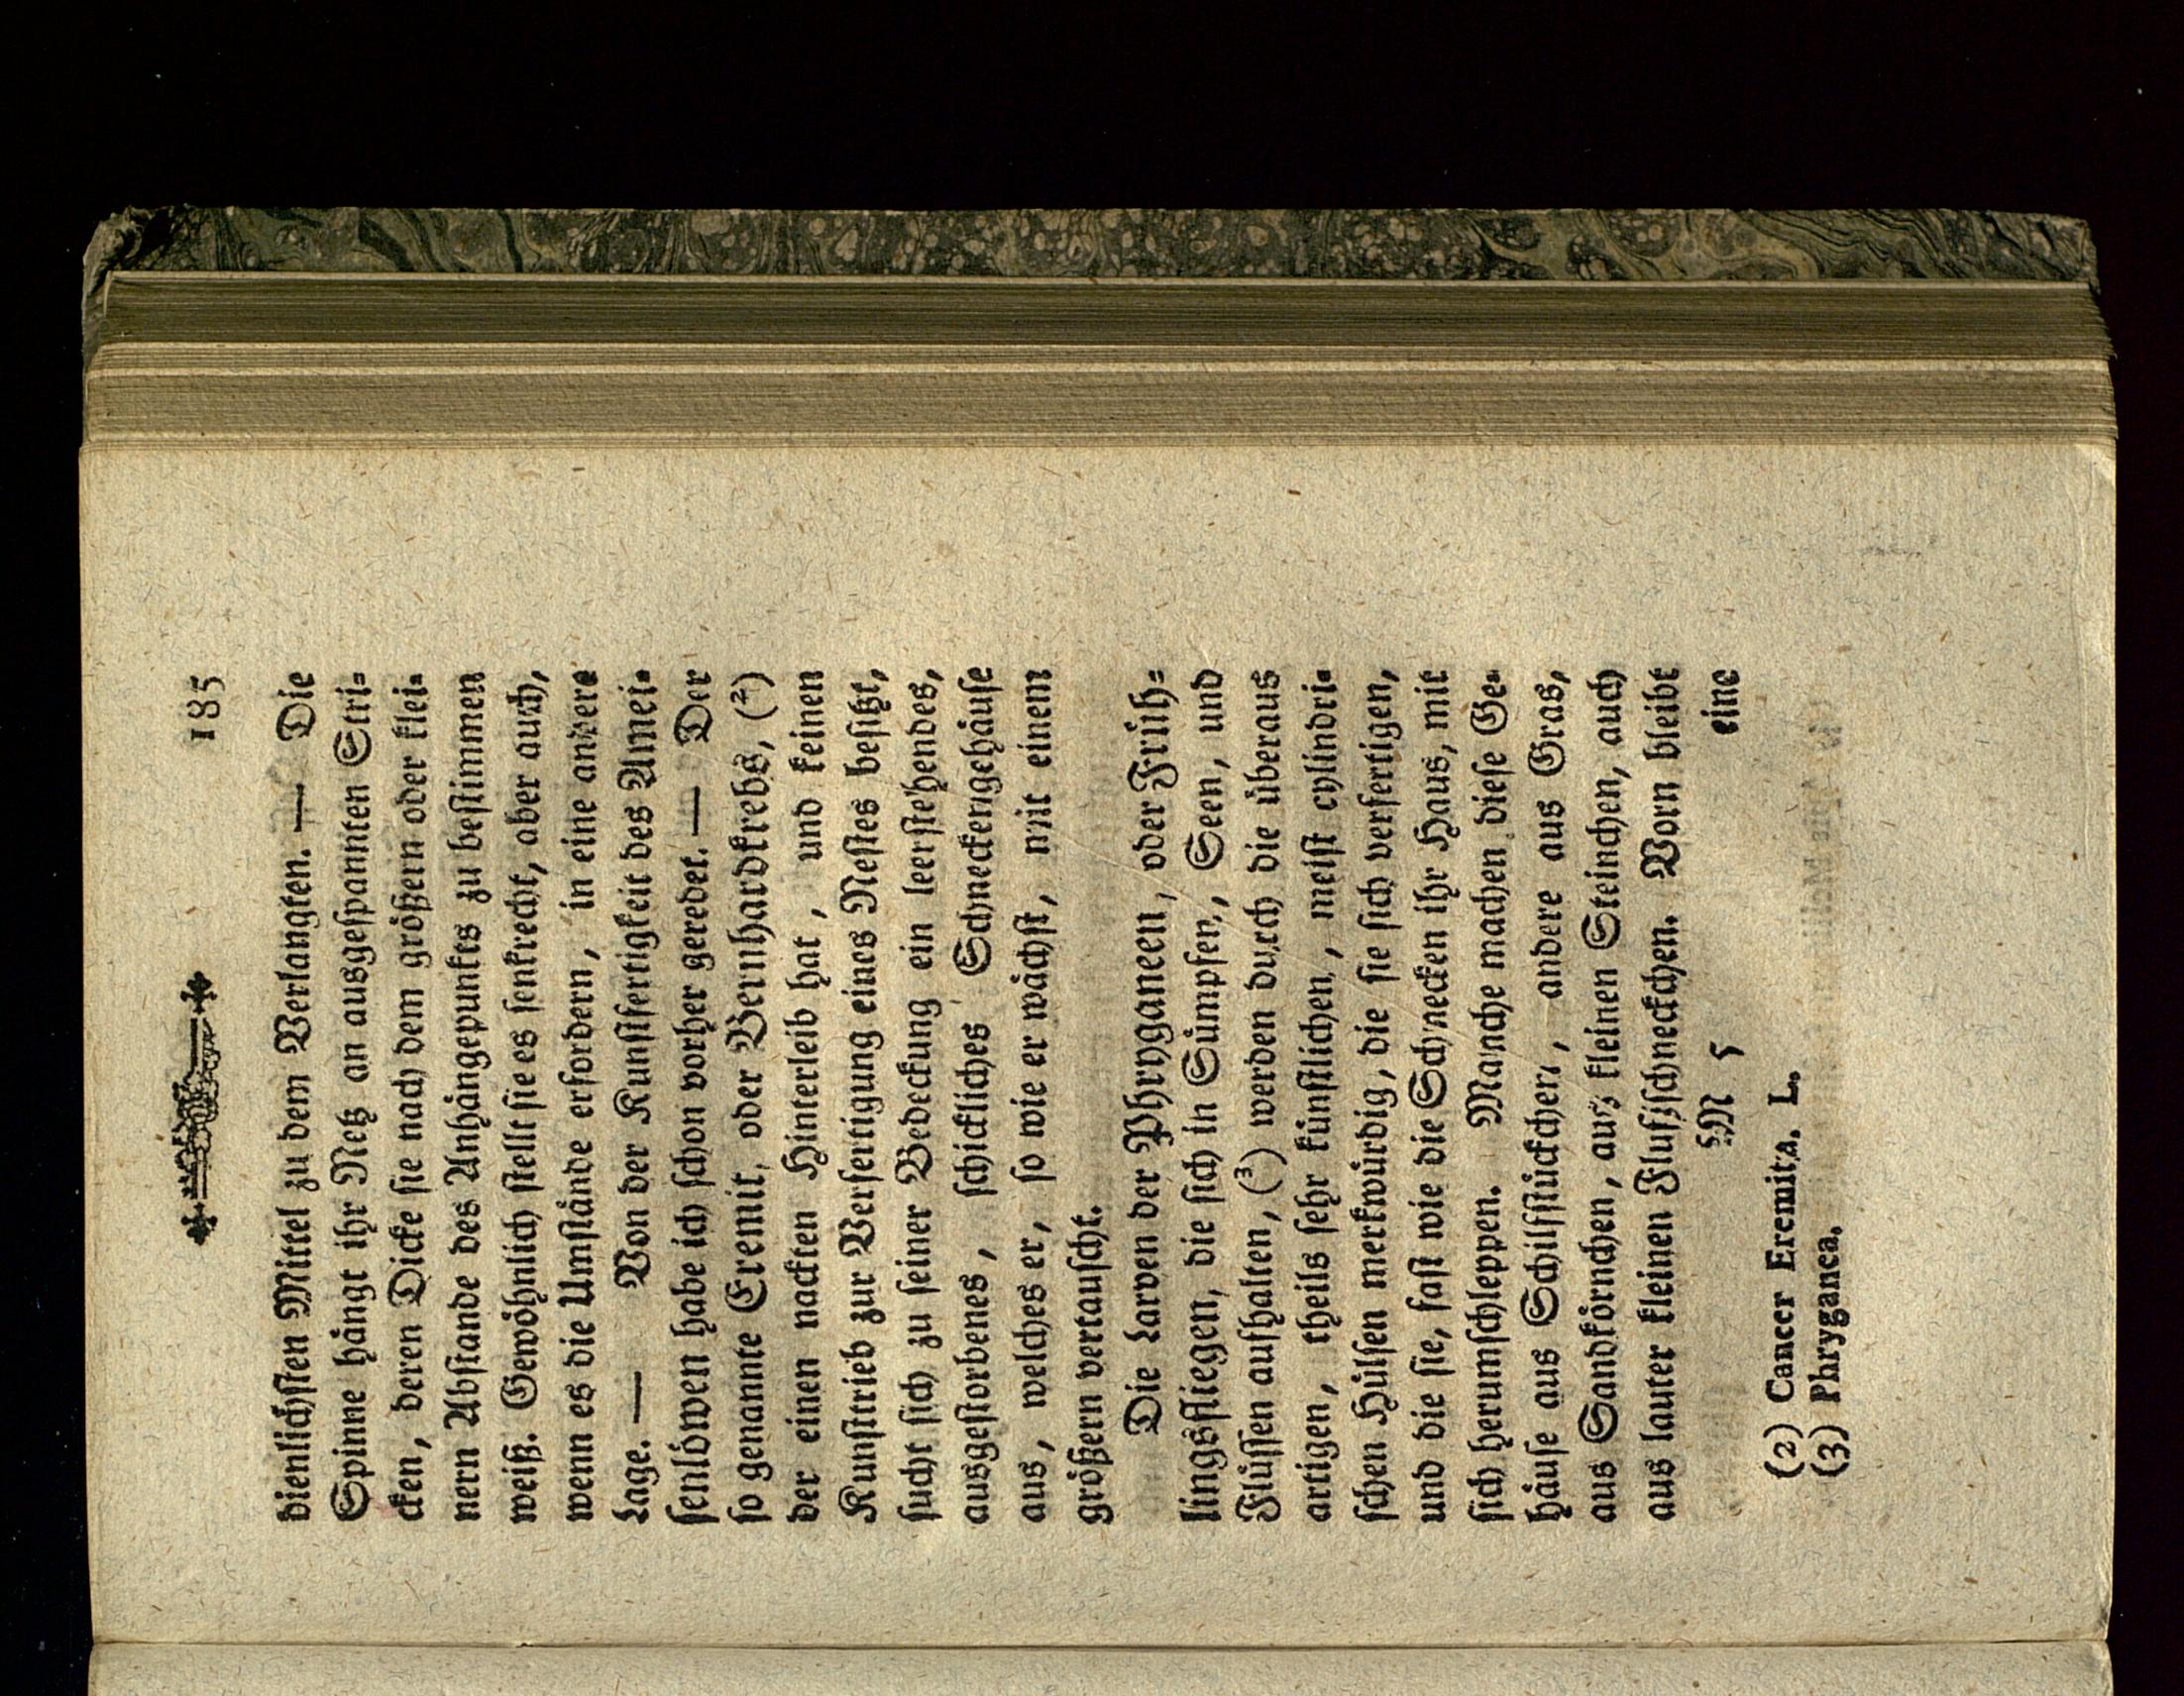 185
dienlichſten Mittel zu dem Verlangten. — Die
Spinne hängt ihr Netz an ausgeſpannten Stri-
cken, deren Dicke ſie nach dem größern oder klei-
nern Abſtande des Anhängepunkts zu beſtimmen
weiß. Gewöhnlich ſtellt ſie es ſenkrecht, aber auch,
wenn es die Umſtände erfordern, in eine andere
Lage. — Von der Kunſtfertigkeit des Amei-
ſenlöwen habe ich ſchon vorher geredet. — Der
ſo genannte Eremit, oder Bernhardkrebs, (2)
der einen nackten Hinterleib hat, und keinen
Kunſttrieb zur Verfertigung eines Neſtes beſitzt,
ſucht ſich zu ſeiner Bedeckung ein leerſtehendes,
ausgeſtorbenes, ſchickliches Schneckengehäuſe
aus, welches er, ſo wie er wächſt, mit einem
größern vertauſcht.
Die Larven der Phryganeen, oder Früh-
lingsfliegen, die ſich in Sümpfen, Seen, und
Flüſſen aufhalten, (3) werden durch die überaus
artigen, theils ſehr künſtlichen, meiſt cylindri-
ſchen Hülſen merkwürdig, die ſie ſich verfertigen,
und die ſie, faſt wie die Schnecken ihr Haus, mit
ſich herumſchleppen. Manche machen dieſe Ge-
häuſe aus Schilfſtückchen, andere aus Gras,
aus Sandkörnchen, aus kleinen Steinchen, auch
aus lauter kleinen Flußſchneckchen. Vorn bleibt
M 5 eine
(2) Cancer Eremita. L.
(3) Phryganea.